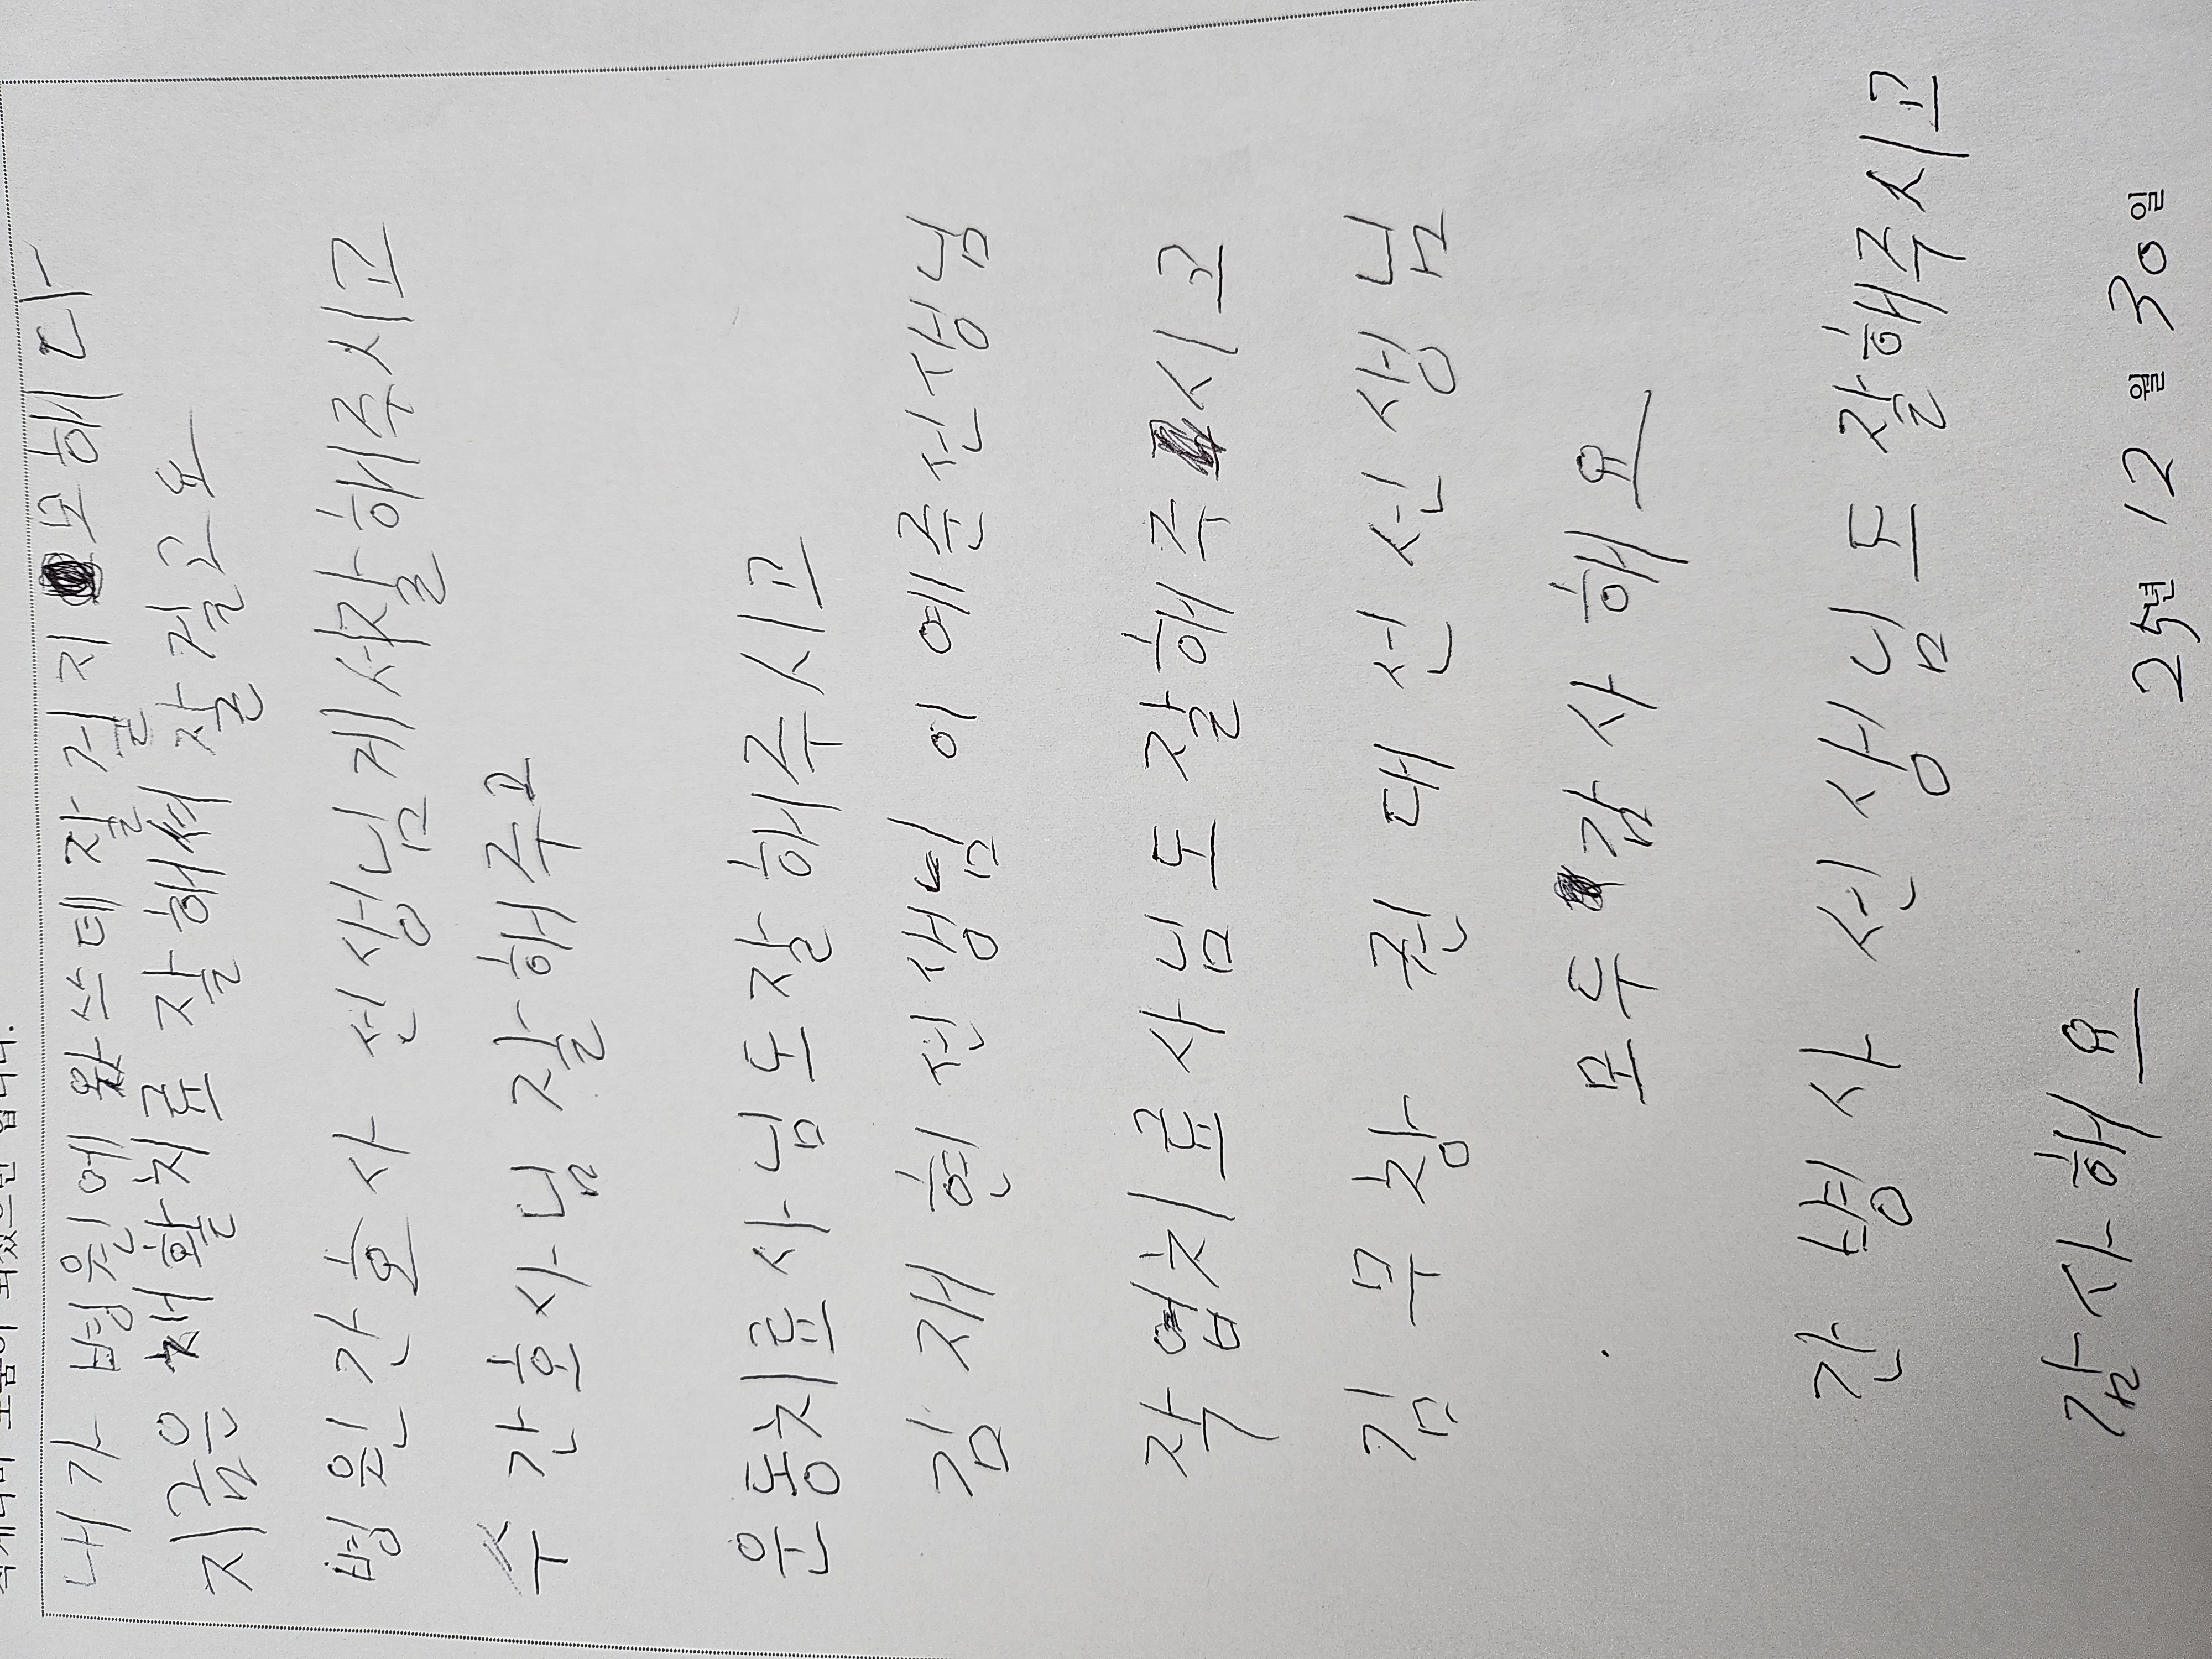 내가 병원에 왔스데 잘 걷지 모해다
지금은 재활치료 잘해서 잘 걷고요
병원 간호사 선생님게서 잘해주시고
수간호사님 잘해주고
운동치료사님도 잘해주시고
김재헌 선생님 이예준 선상님
작업치료사님도 잘해주시고
김무창 권대선 선생님
모두 감사해요
간병사 선생님도 잘해주시고
감사해요
25년 12월 30일